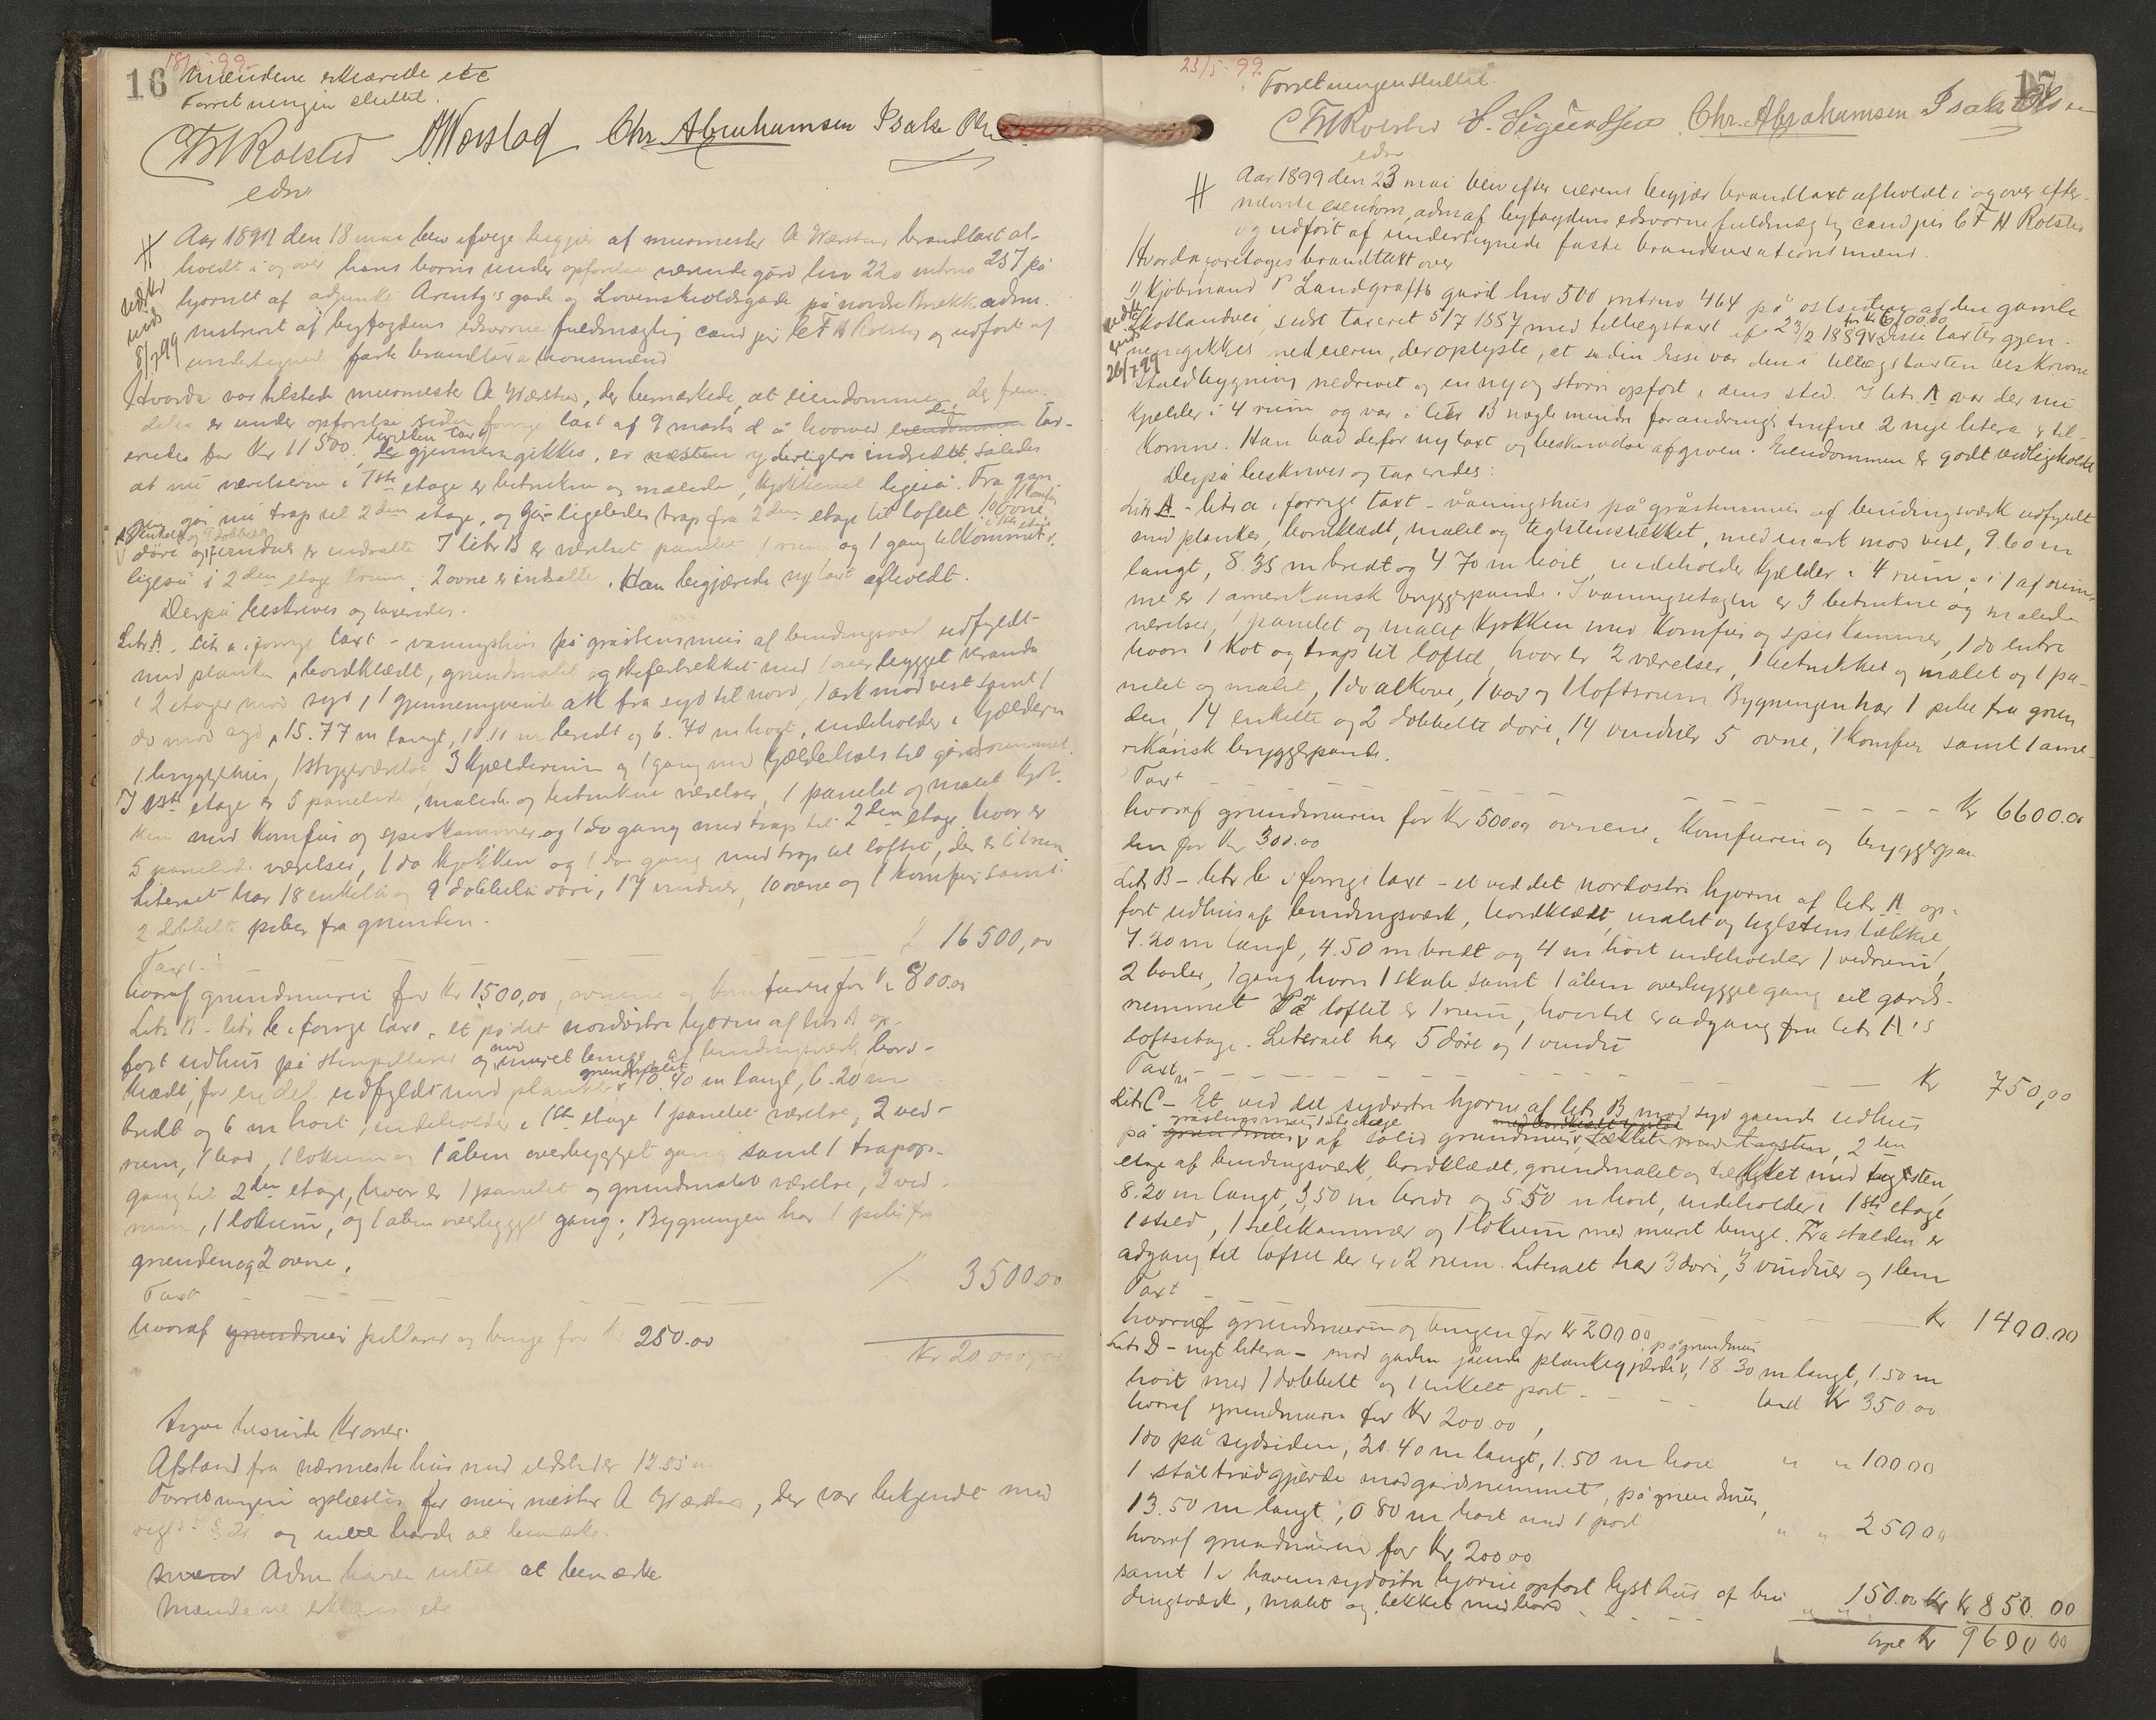 16
18/5-99.
Mændene erklærede etc
Forretningen sluttet.
CFHRolsted Chr. Abrahamsen Isak
edsv
Aar 1899 den 18 mai blev ifølge begjær af murmester A brandtaxt af-
holdt i og over hans borris under opførelse værende gård hno 220 mtrno 257 på
hjørnet af adjunkt Arentz's gade og Løvenskioldsgade på nordre Brekke adm.
af byfogdens edsvorne fuldmægtig cand jur C F H Rolsted og udført af
undertegnede faste brandtaxationsmænd
Hvorda var tilstede murmester A, der bemærkede, at eiendommen, der frem-
deles er under opførelse siden forrige taxt af 9 marts d å hvorved den tax-
eredes for Kr 11500, hvilken taxt gjennemgikkes, er næsten yderligere indredet, således
at nu værelserne i 1ste etage er betrukne og malede, kjøkkenet ligeså. Fra gan-
gen går nu trap til 2den etage, og går ligeledes trap fra 2den etage til loftet, 10 ovne, 1 komfur
18 enkelte og 9 dobbelte
døre og 17 vinduer er indsatte I litr B er værelset panelet 1 rum og 1 gang tilkommet i 1ste etage
ligeså i 2den etage 1 rum, 2 ovne er indsatte. Han begjærede ny taxt afholdt.
Derpå beskrives og taxeredes.
Litr A. litr a i forrige taxt - vaningshus på gråstensmur af bindingsværk udfyldt
med planker, bordklædt, grundmalet og skifertækket med 1 overbygget veranda
i 2 etager mod syd, 1 gjennemgående ark fra syd til nord, 1 ark mod vest samt 1
do mod syd, 15.77 m langt, 10.11 m bredt og 6.70 m højt, indeholder i kjælderen
1 bryggehus, 1 strygeværelse 3 kjælderrum og 1 gang med kjælderhals til gårdsrummet.
I 1ste etage er 5 panelede, malede og betrukne værelser, 1 panelet og malet kjøk-
ken med komfur og spiskammer og 1 do gang med trap til 2den etage hvor er
5 panelede værelser, 1 do kjøkken og 1 do gang med trap til loftet, der er i 1 rum
Literaet har 18 enkelte og 9 dobbelte døre, 17 vinduer, 10 ovne og 1 komfur samt
2 dobbelte piber fra grunden.
Taxt. 16500,00
hvoraf grundmuren for Kr 1500,00, ovnene og komfuren for Kr 800.00
Litr B - litr b i forrige taxt - et på det nordøstre hjørne af litr A op-
ført udhus på stenpillarer og med muret binge af bindingsværk bord-
klædt, for en del udfyldt med planker, grundmalet 10.40 m langt, 6.20 m
bredt og 6 m høit, indeholder i 1ste etage 1 panelet værelse, 2 ved-
rum, 1 bod, 1 lokum og 1 åben overbygget gang samt 1 trapop-
gang til 2den etage, hvor er 1 panelet og grundmalet værelse, 2 ved-
rum, 1 lokum, og 1 aben overbygget gang. Bygningen har 1 pibe fra
grunden og 2 ovne.
Taxt 3500.00
hvoraf grundmur pillarer og binge for kr 250.00
Kr 20 000,00
tyve tusinde Kroner.
Afstand fra nærmeste hus med ildsteder 12.55 m
Forretningen oplæstes for murmester A, der var bekjendt med
§ 21 og intet havde at bemærke.
Adm havde intet at bemærke
Mændene erklærede etc

17
23/5-99.
Forretningen sluttet.
CFHRolsted S. Sigurdsen Chr. Abrahamsen Isak Olsen
edsv
Aar 1899 den 23 mai blev efter eierens begjær brandtaxt afholdt i og over efter-
nævnte eiendom, adm af byfogdens edsvorne fuldmægtig cand jur C F H Rolsted
og udført af undertegnede faste brandtaxationsmænd.
Hvorda foretoges brandtaxt over
1) Kjøbmand P Landgraffs gård hno 500 mtrno 464 på østsiden af den gamle
Skotlandvei, sidst taxeret 5/7 1887 med tillægstaxt af 23/2 1889 for Kr 6100.00. Disse taxter gjen-
nemgikkes med eieren, der oplyste, at siden disse var den i tillægstaxten beskrevne
staldbygning nedrevet og en ny og større opført i dens sted. I litr A var der nu
kjælder i 4 rum og var i litr B nogle mindre forandringer trufne 2 nye litera er til-
komne. Han bad derfor ny taxt og beskrivelse afgiven. Eiendommen er godt vedligeholdt
Derpå beskrives og taxeredes:
Litr A - litr a i forrige taxt - våningshus på gråstensmur af bindingsværk udfyldt
med planker, bordklædt, malet og teglstenstækket, med en ark mod vest, 9.60 m
langt, 8.35 m bredt og 4.70 m høit, indeholder kjælder i 4 rum, i 1 af rum-
me er 1 amerikansk bryggerpande. I vaningsetagen er 3 betrukne og malede
værelser, 1 panelet og malet kjøkken med komfur og spiskammer, 1 do entre
hvori 1 kot og trap til loftet, hvor er 2 værelser, 1 betrukket og malet og 1 pa-
nelet og malet, 1 do alkove, 1 bod og 1 loftsrum Bygningen har 1 pibe fra grun-
den, 14 enkelte og 2 dobbelte døre, 14 vinduer 5 ovne, 1 komfur samt 1 ame-
rikansk bryggerpande.
Taxt Kr 6600.00
hvoraf grundmuren for Kr 500.00 ovnene, komfuren og bryggerpan-
den for Kr 300.00
Litr B - litr b i forrige taxt - et ved det nordøstre hjørne af litr A op-
ført udhus af bindingsværk, bordklædt, malet og teglstenstækket,
7.20 m langt, 4.50 m bredt og 4 m høit indeholder 1 vedrum,
2 boder, 1 gang hvori 1 skab samt 1 åben overbygget gang til gårds-
rummet På loftet er 1 rum, hvortil er adgang fra litr A's
loftsetage. Literaet har 5 døre og 1 vindu
Taxt Kr 750,00
Litr C - Et ved det sydøstre hjørne af litr B mod syd gaende udhus
på gråstensmur, 1ste etage af solid grundmur, tækket med tagsten, 2den
etage af bindingsværk, bordklædt, grundmalet og tækket med teglsten,
8.20 m langt, 3,50 m bredt og 5.50 m høit, indeholder i 1ste etage
1 stald, 1 selekammer og 1 lokum med muret binge. Fra stalden er
adgang til loftet der er i 2 rum. Literaet har 3 døre, 3 vinduer og 1 lem
Taxt Kr 1400.00
hvoraf grundmuren og bingen for Kr 200.00
Litr D - nyt litera - mod gaden stående plankegjærde på grundmur, 18.30 m langt, 1.50 m
høit med 1 dobbelt og 1 enkelt port - taxt Kr 350.00
hvoraf grundmuren for Kr 200.00,
1 do på sydsiden, 21.40 m langt, 1.50 m høit " " 100.00
1 ståltrådgjærde mod gårdsrummet, på grundmur,
13.50 m langt, 0.80 m høit med 1 port " " 250.00
hvoraf grundmuren for Kr 200.00
samt 1 i havens sydøstre hjørne opført lysthus af bin-
dingsværk, malet og tækket med bord " " 150.00 Kr 850.00
Kr 9600.00